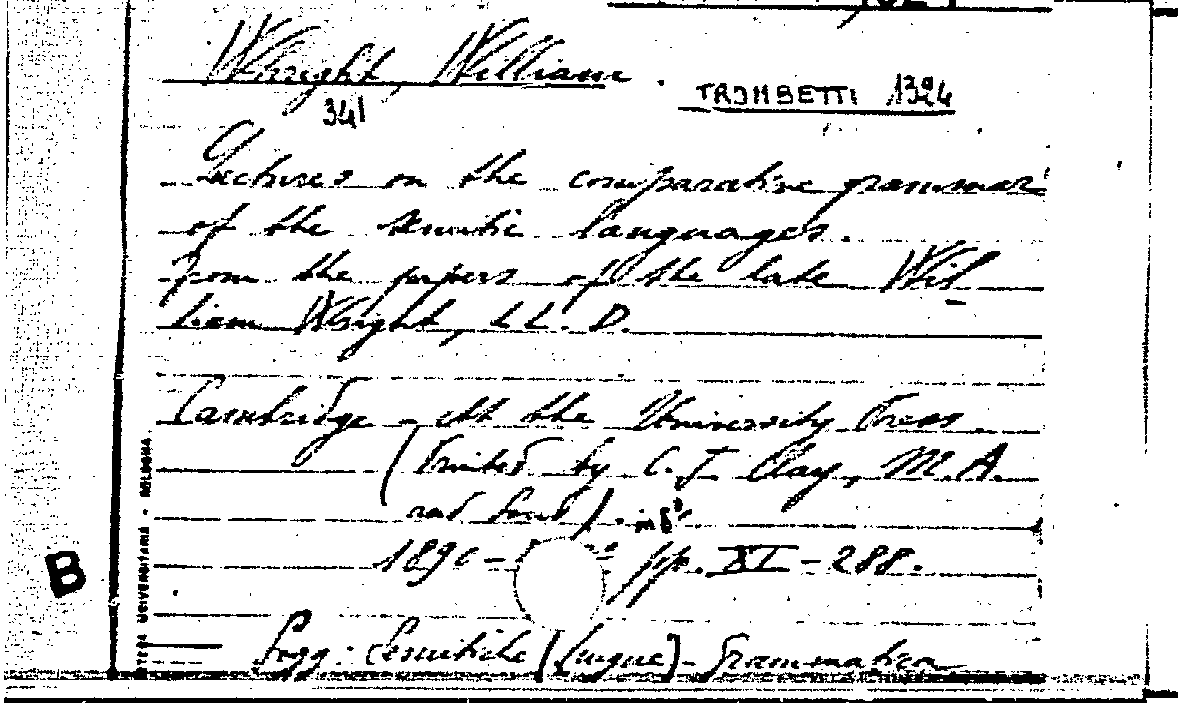 Wright, William.
341
TROMBETTI 1324
Lectures on the comparative grammar
of the semitic languages.
from the papers of the late Wil
liam Wright, LL. D.
Cambridge - At the University Press.
(Printed by C. J. Clay, M. A.
and Sons). in 8°.
1890 - pp. XI - 288.
Sogg: Semitiche (Lingue) - Grammatica
UNIVERSITARIA - BOLOGNA
B